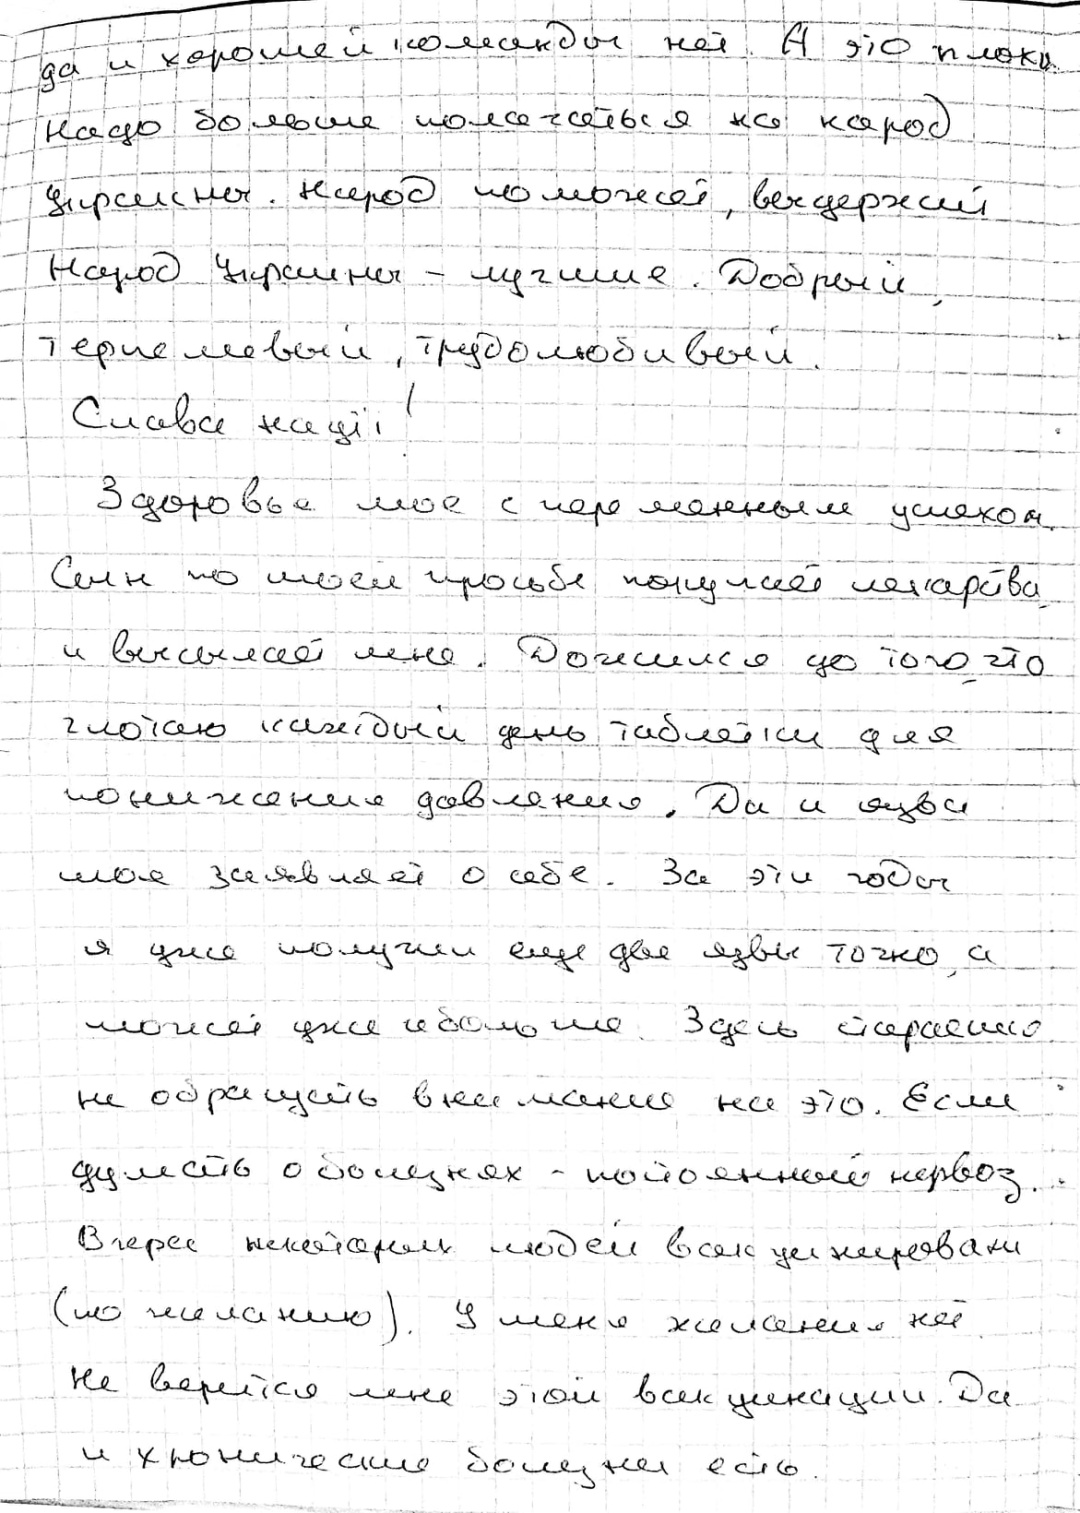 да и хорошей команды нет. А это плохо.
Надо больше полагаться на народ
Украины. Народ поможет, выдержит
Народ Украины – лучше. Добрый,
терпеливый, трудолюбивый.
Слава нації!
Здоровье мое с переменным успехом.
Сын по моей просьбе покупает лекарства
и высылает мне. Дожился до того, что
глотаю каждый день таблетки для
понижения давления. Да и язва
моя заявляет о себе. За эти годы
я уже получил еще две язвы точно, а
может уже и больше. Здесь стараюсь
не обращать внимание на это. Если
думать о болезнях – постоянный нервоз.
Вчера некоторых людей вакцинировали
(по желанию). У меня желания нет.
Не верится мне этой вакцинации. Да
и хронические болезни есть.